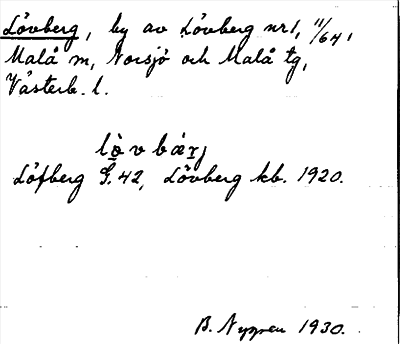 Lövberg, by av Lövberg nr 1, 11/64,
Malå sn, Norsjö och Malå tg,
Västerb. l.
lòvbárj
Löfberg G. 42, Lövberg kb. 1920.
B. Nygren 1930.